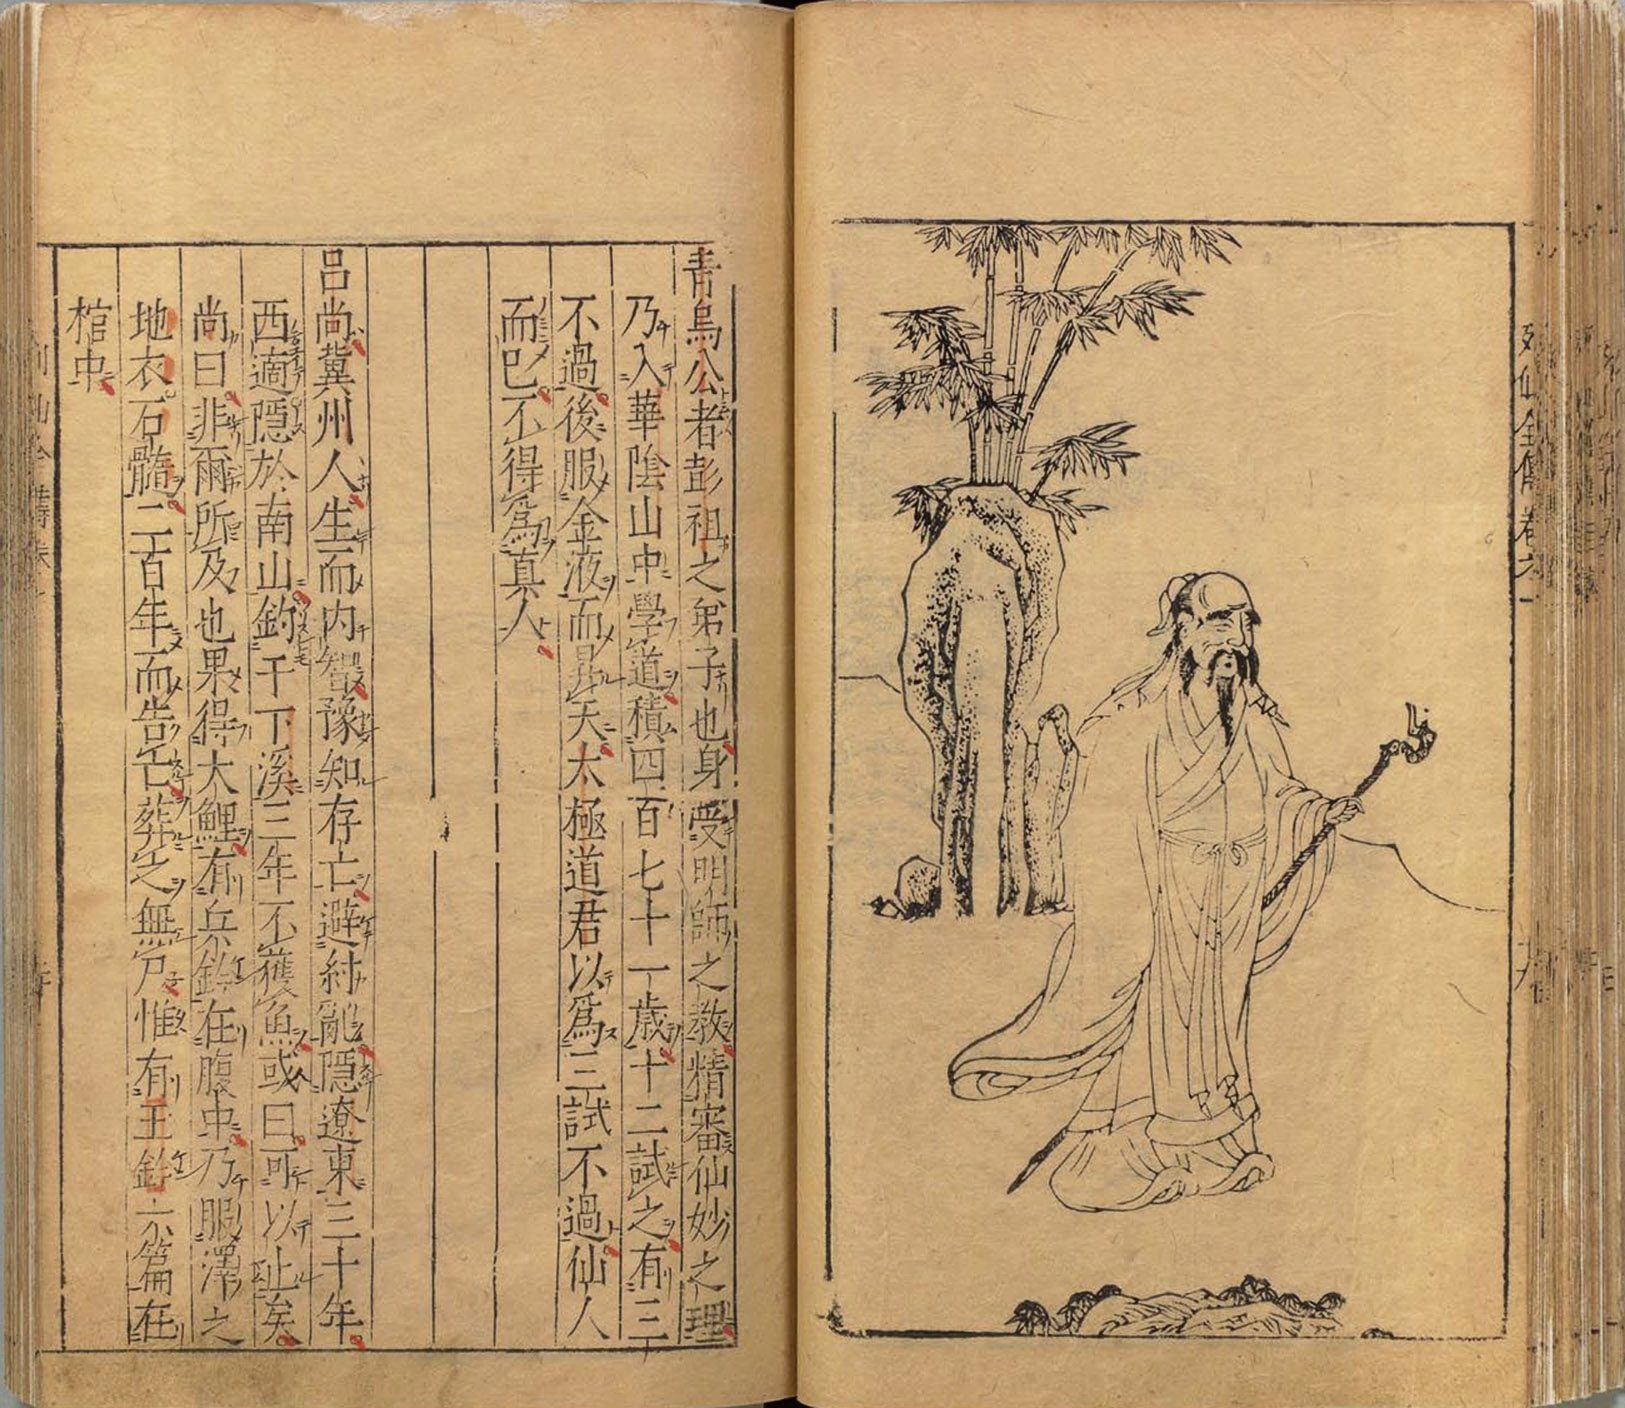 列仙全傳卷之一
青烏公者彭祖之弟子也身受明師之教精審仙妙之理
乃入華陰山中學道積四百七十一歲十二試之有三
不過後服金液而昇天太極道君以爲三試不過仙人
而已不得爲真人
呂尚冀州人生而內智豫知存亡避紂亂隱遼東三十年
西適隱於南山釣于下溪三年不獲魚或曰可以止矣
尚曰非爾所及也果得大鯉有兵鈐在腹中乃服澤之
地衣石髓二百年而告亡葬之無尸惟有玉鈐六篇在
棺中